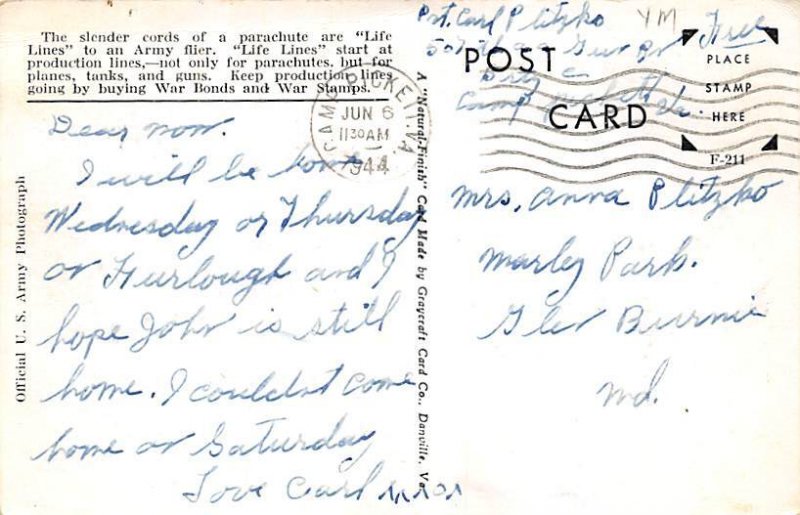 The slender cords of a parachute are "Life
Lines" to an Army flier. "Life Lines" start at
production lines,—not only for parachutes, but for
planes, tanks, and guns. Keep production lines
going by buying War Bonds and War Stamps.
Official U. S. Army Photograph
Dear mom.
I will be home
Wednesday or Thursday
on Furlough and I
hope John is still
home. I couldn't come
home on Saturday
Love Carl
CAMP PICKETT, VA.
JUN 6
1130AM
1944
A "Natural-Finish" Card Made by Graycraft Card Co., Danville, Va.
Pvt. Carl Plitzko
YM
Free
Btry C
Camp Pickett Va.
POST CARD
PLACE
STAMP
HERE
F-211
Mrs. Anna Plitzko
Marley Park.
Glen Burnie
Md.